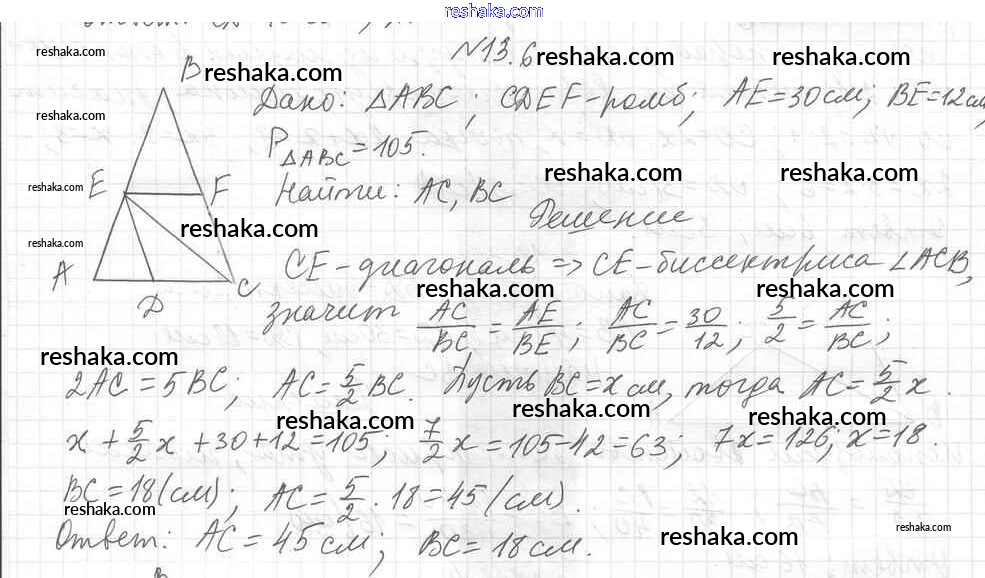 reshaka.com
№13.6
Дано: △ABC; CDEF-ромб; AE=30см; BE=12см,
P△ABC=105.
Найти: AC, BC
Решение
B
E F
A D C
CE-диагональ => CE-биссектриса ∠ACB,
значит AC/BC = AE/BE; AC/BC = 30/12; 5/2 = AC/BC;
2AC=5BC; AC=5/2 BC. Пусть BC=x см, тогда AC=5/2 x.
x+5/2 x+30+12=105; 7/2 x=105-42=63; 7x=126; x=18.
BC=18(см); AC=5/2·18=45(см).
Ответ: AC=45см; BC=18см.
reshaka.com
reshaka.com
reshaka.com
reshaka.com
reshaka.com
reshaka.com
reshaka.com
reshaka.com
reshaka.com
reshaka.com
reshaka.com
reshaka.com
reshaka.com
reshaka.com
reshaka.com
reshaka.com
reshaka.com
reshaka.com
reshaka.com
reshaka.com